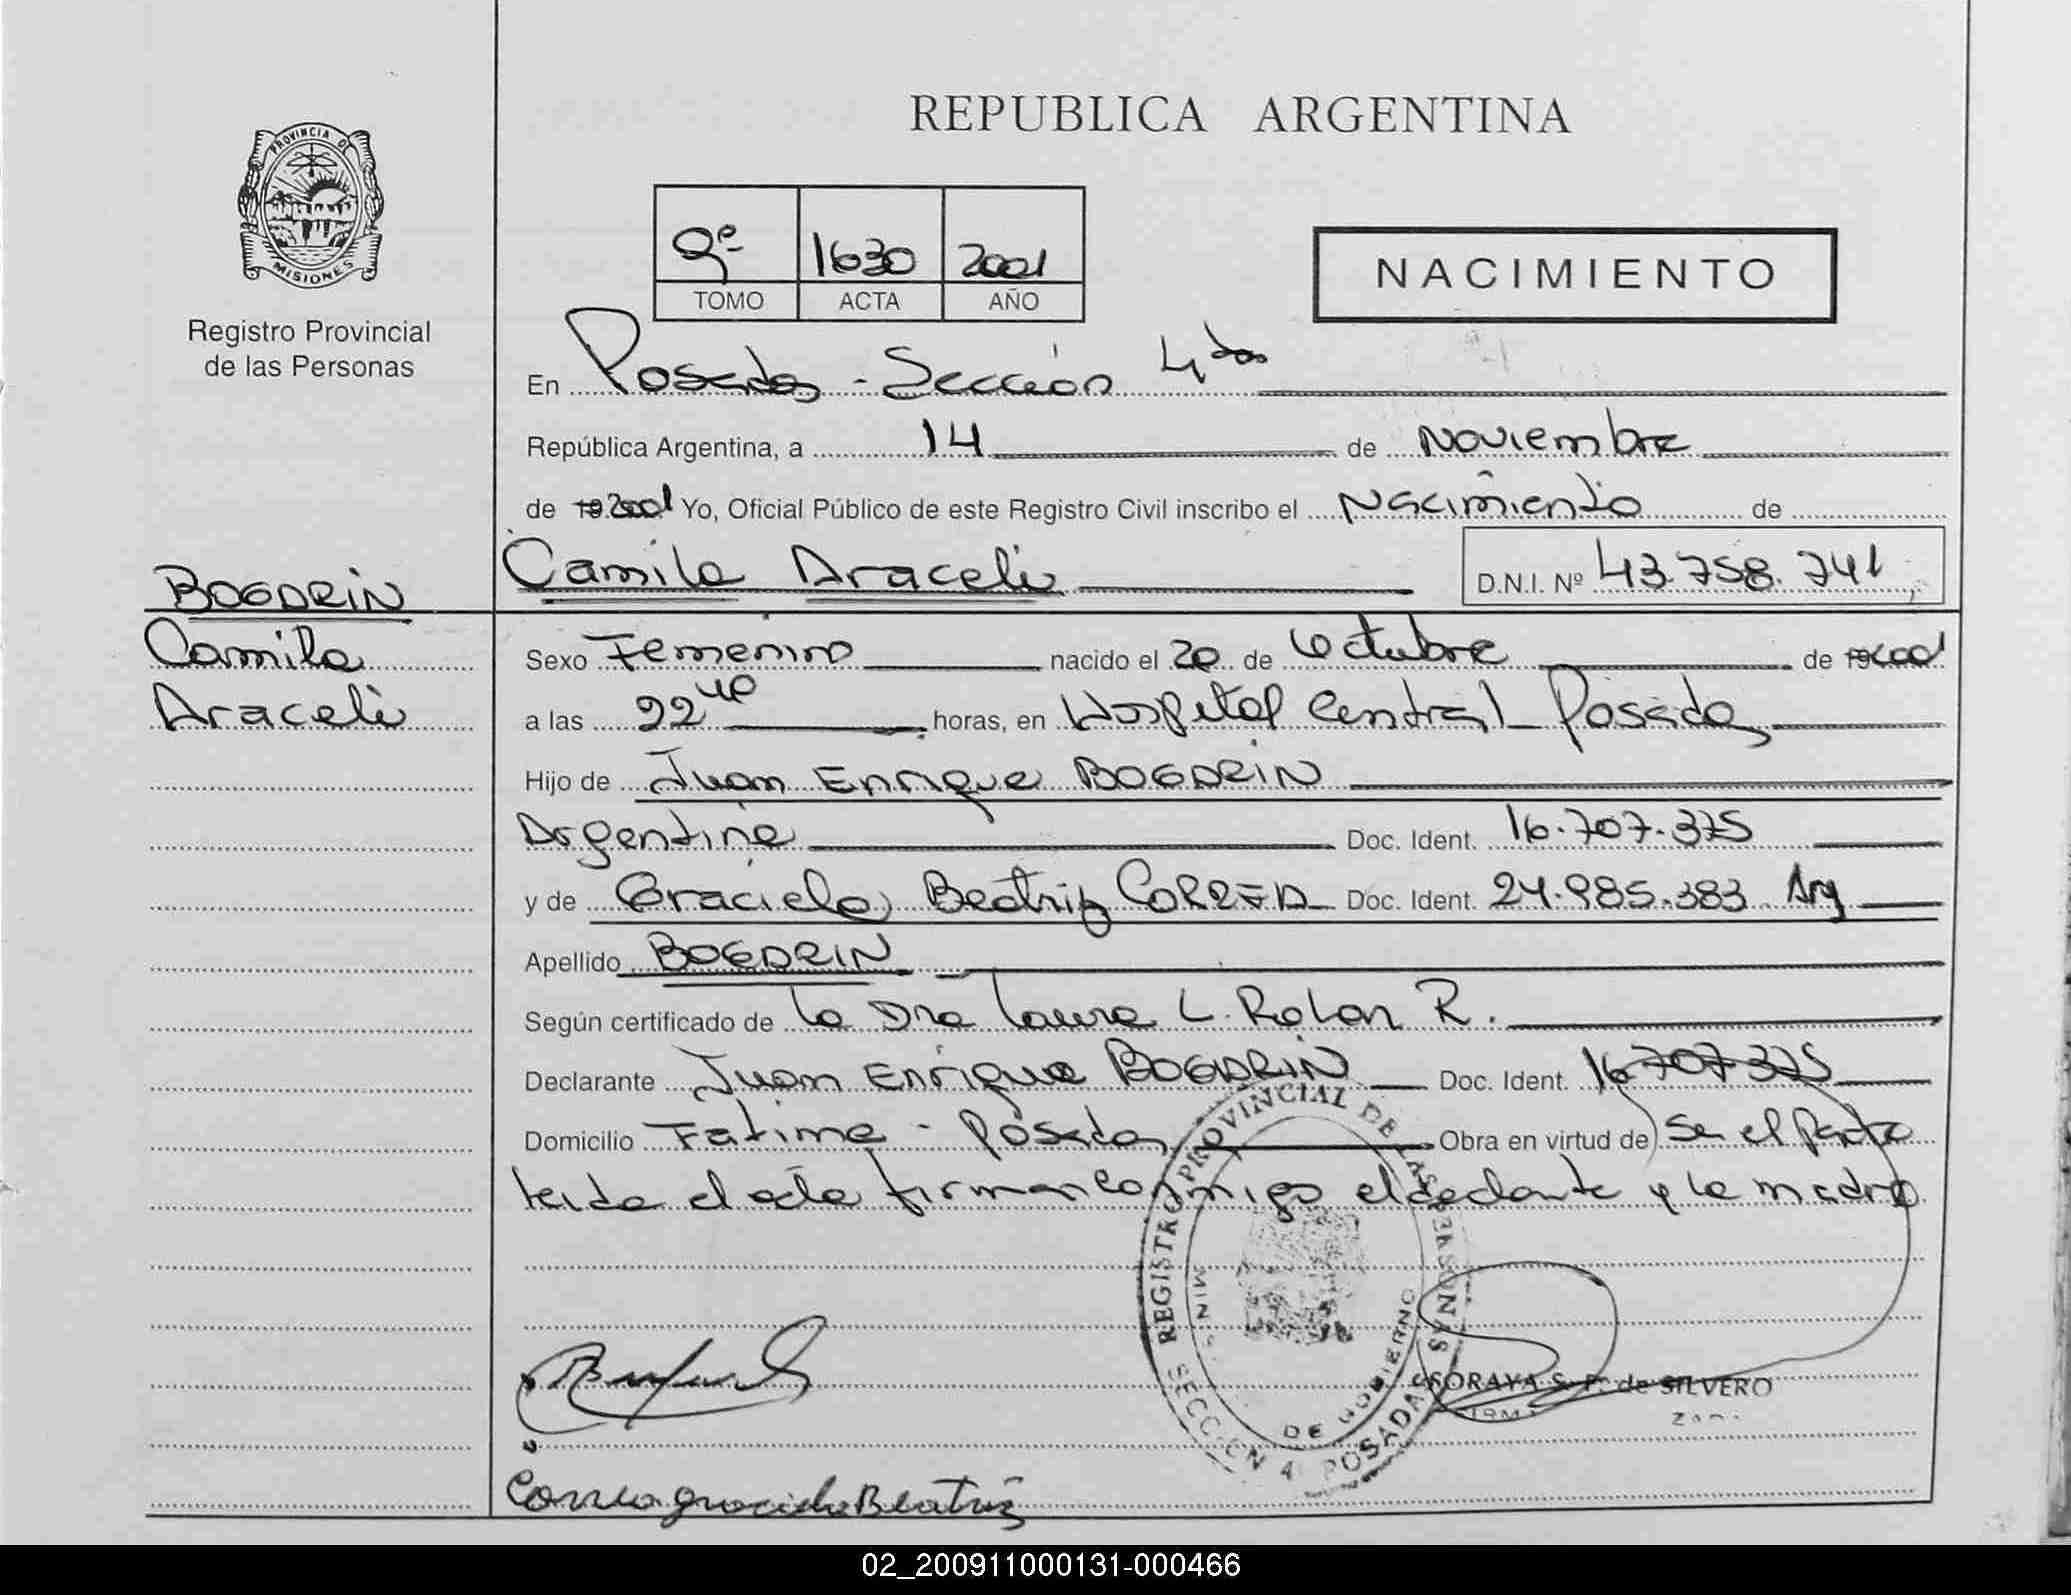 PROVINCIA DE
MISIONES
Registro Provincial
de las Personas
REPUBLICA ARGENTINA
1630 2001
TOMO ACTA AÑO
NACIMIENTO
En Posadas - Sección 4ta
República Argentina, a 14 de Noviembre
de 19 2001 Yo, Oficial Público de este Registro Civil inscribo el Nacimiento de
Camila Araceli D.N.I. Nº 43.758.741
BOGDRIN
Camila
Araceli
Sexo Femenino nacido el 20 de Octubre de 2001
a las 22 horas, en Hospital Central Posadas
Hijo de Juan Enrique BOGDRIN
Argentina Doc. Ident. 16.707.375
y de Graciela Beatriz CORREA Doc. Ident. 24.985.383 Arg
Apellido BOGDRIN
Según certificado de la Dra Laura L. Rolon R.
Declarante Juan Enrique BOGDRIN Doc. Ident. 16.707.375
Domicilio Fatima - Posadas Obra en virtud de Ser el padre
leida el acta firman conmigo el declarante y la madre
REGISTRO PROVINCIAL DE LAS PERSONAS
DE GOBIERNO
SECCION 4 POSADAS
SORAYA S. P. de SILVERO
Correa graciela Beatriz
02_200911000131-000466